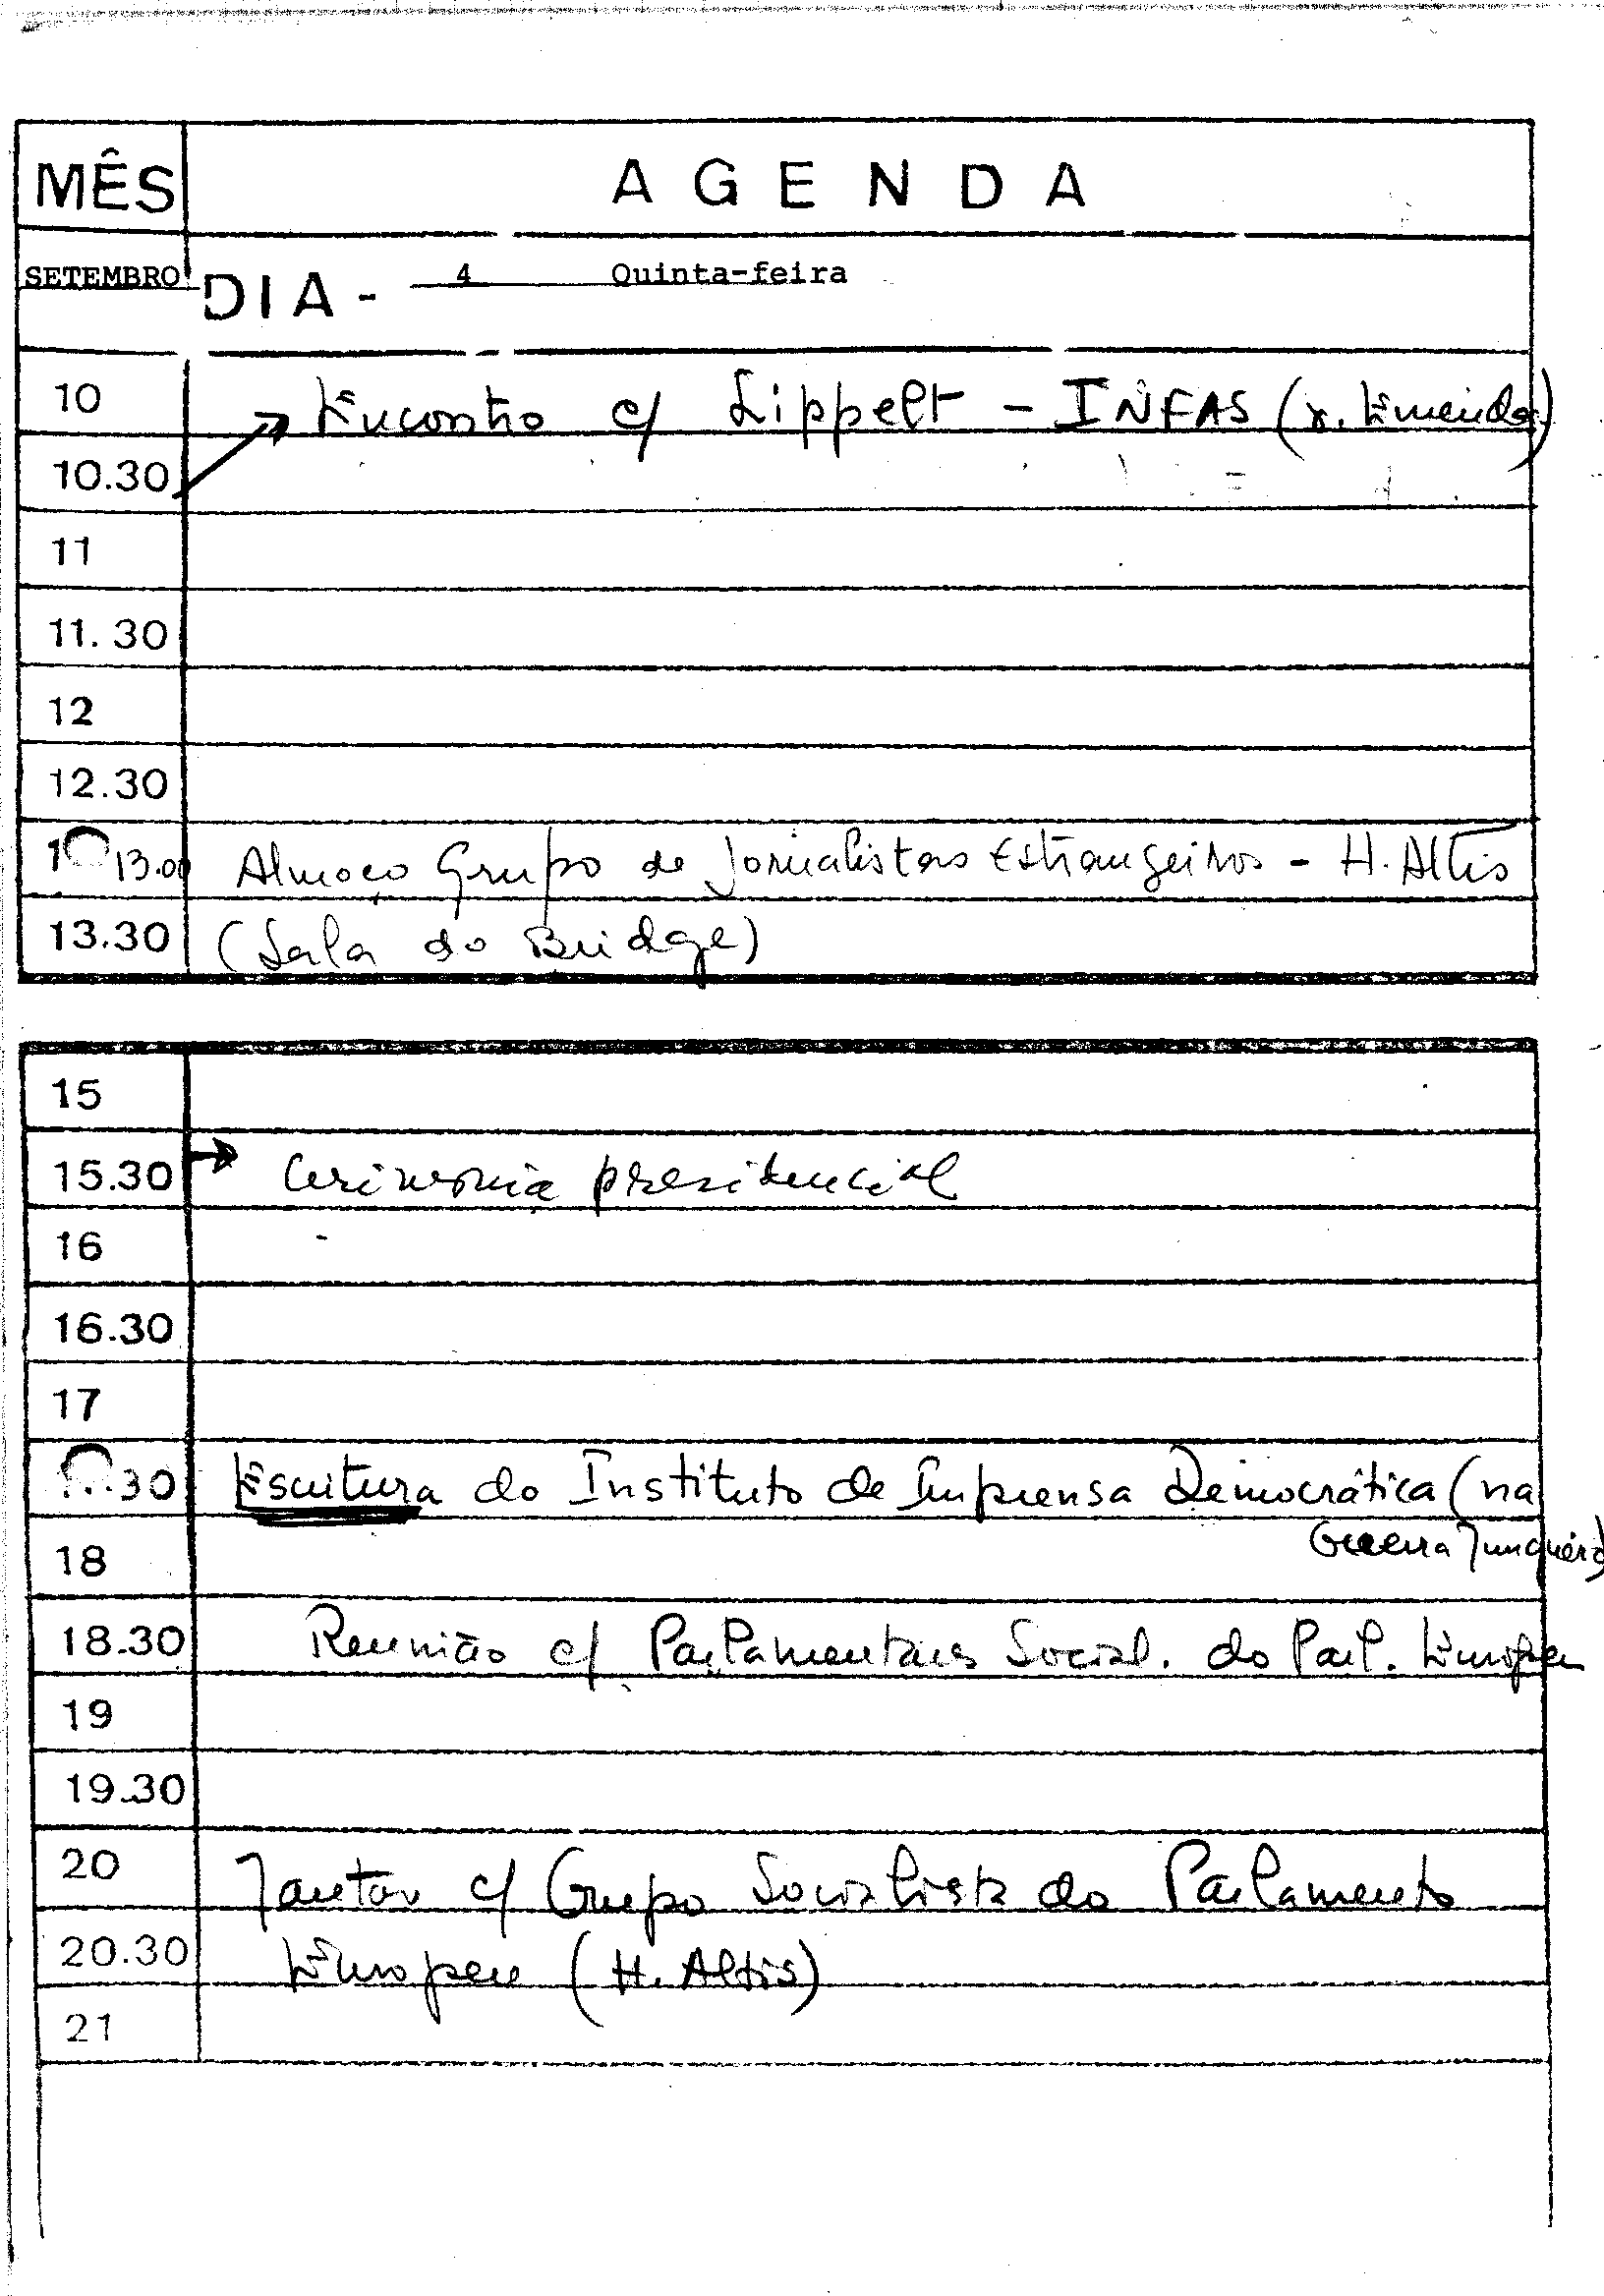 MÊS AGENDA
SETEMBRO DIA - 4 Quinta-feira
10 Encontro c/ Lippelt - INFAS (r. Emenda)
10.30
11
11.30
12
12.30
13.00 Almoço Grupo de Jornalistas Estrangeiros - H. Altis
13.30 (Sala do Bridge)
15
15.30 Cerimonia presidencial
16
16.30
17
30 Escritura do Instituto de Imprensa Democrática (na
18 Guerra Junqueiro)
18.30 Reunião c/ Parlamentares Social. do Parl. Europeu
19
19.30
20 Jantar c/ Grupo Socialista do Parlamento
20.30 Europeu (H. Altis)
21